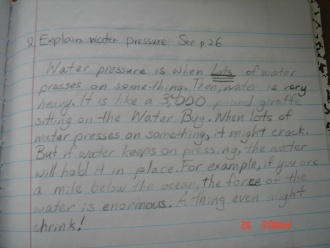 2. Explain water pressure See p.26
Water pressure is when lots of water
presses on something. Then, water is very
heavy. It is like a 3,000 pound giraffe
sitting on the Water Bug. When lots of
water presses on something, it might crack.
But if water keeps on pressing, the water
will hold it in place. For example, if you are
a mile below the ocean, the force of the
water is enormous. A thing even might
shrink!